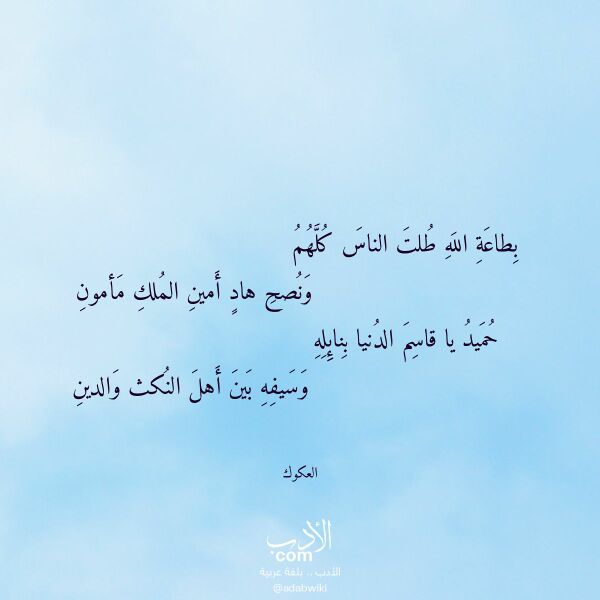 بِطاعَةِ اللَهِ طُلتَ الناسَ كُلَّهُمُ
وَنُصحِ هادٍ أَمينِ المُلكِ مَأمونِ
حُمَيدُ يا قاسِمَ الدُنيا بِنائِلِهِ
وَسَيفِهِ بَينَ أَهلَ النُكث وَالدينِ
العكوك
الأدب
.com
الأدب .. بلغة عربية
@adabwiki